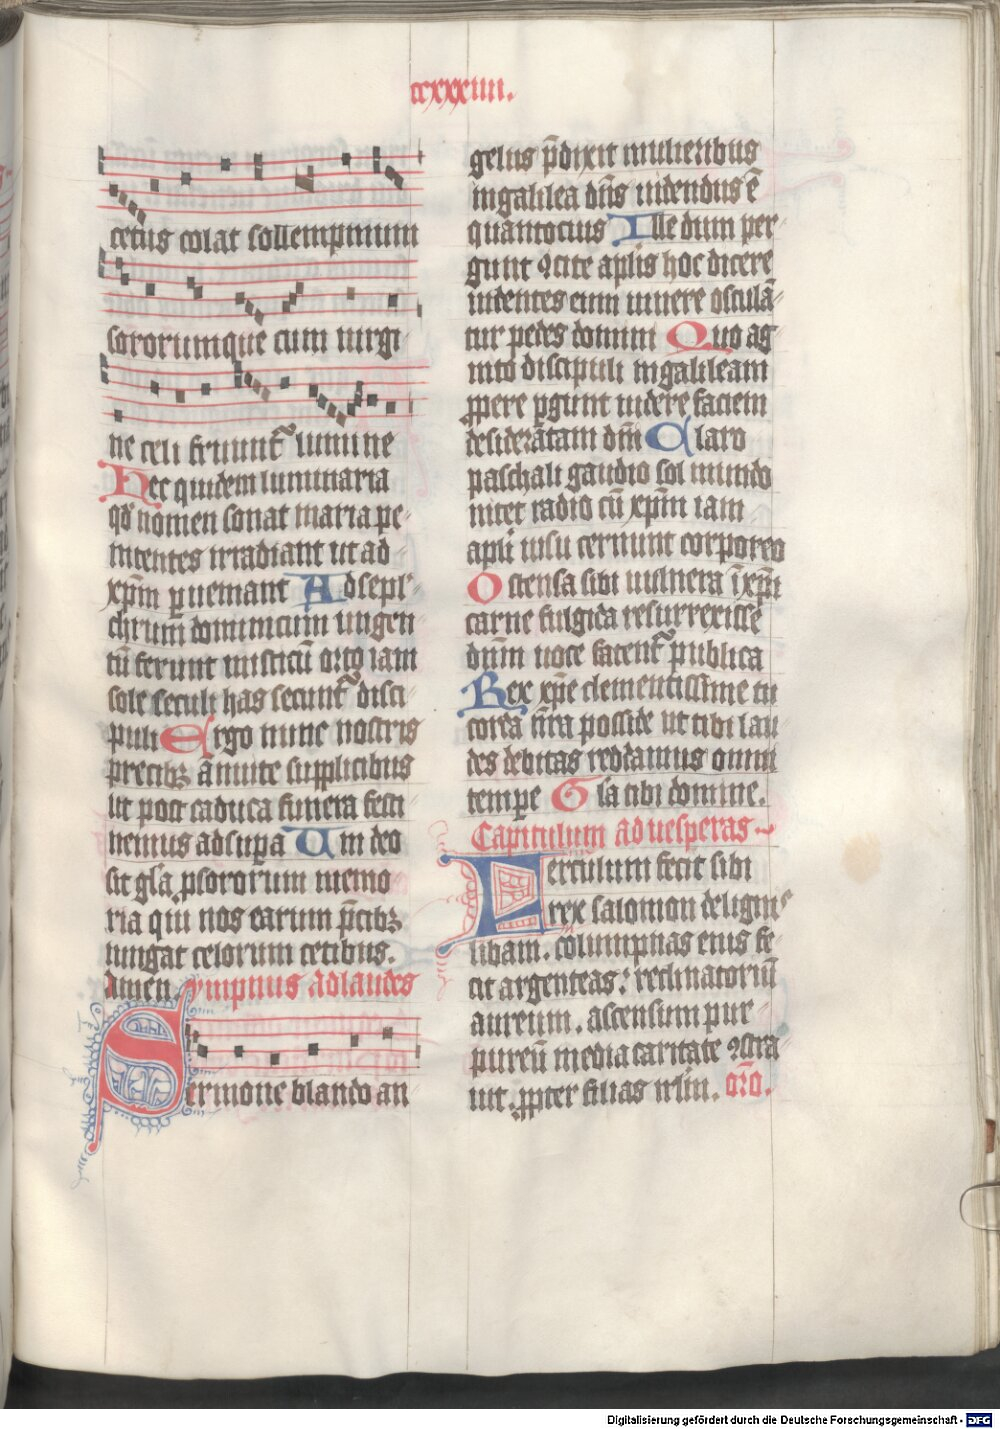 ccxxxiiii.
cetus colat sollempnium
sororumque cum uirgi
ne celi fruunt᷑ lumine
Hec quidem luminaria
qd̄ nomen sonat maria pe-
nitentes irradiant ut ad-
xp̄m ꝑueniant Ad sepl'-
chrum dominicum ungen-
tū ferunt misticū orto iam
sole seculi has secunt᷑ disci-
puli Ergo nunc nostris
precibꝫ ānuite supplicibus
ut post caduca funera festi-
nemus ad supͣa Uni deo
sit gl̄a ꝓ sororum memo-
ria qui nos earum p̄cibꝫ
iungat celorum cetibus.
Amen. Ympnus ad laudes
Sermone blando an-
gelus p̄dixit mulieribus
in galilea dn̄s uidendus ē
quantocius Ille dum per-
gunt ꝯcite apl̄is hoc dicere
uidentes eum uiuere osculā-
tur pedes domini Quo ag-
nito discipuli in galileam
ꝓpere ꝑgunt uidere faciem
desideratam dn̄i Claro
paschali gaudio sol mundo
nitet radio cū xp̄m iam
apl̄i uisu cernunt corporeo
Ostensa sibi uulnera ī xp̄i
carne fulgida resurrexisse
dn̄m uoce fatent᷑ publica
Rex xp̄e clementissime tu
corda nr̄a posside ut tibi lau-
des debitas reddamus omni
tempe Gl̄a tibi domine.
Capitulum ad uesperas
Ferculum fecit sibi
rex salomon de lignis
libani. columpnas eius fe-
cit argenteas: reclinatoriū
aureum. ascensum pur-
pureū media caritate ꝯstra-
uit. ꝓpter filias irlm̄. or̄o.
Digitalisierung gefördert durch die Deutsche Forschungsgemeinschaft - DFG